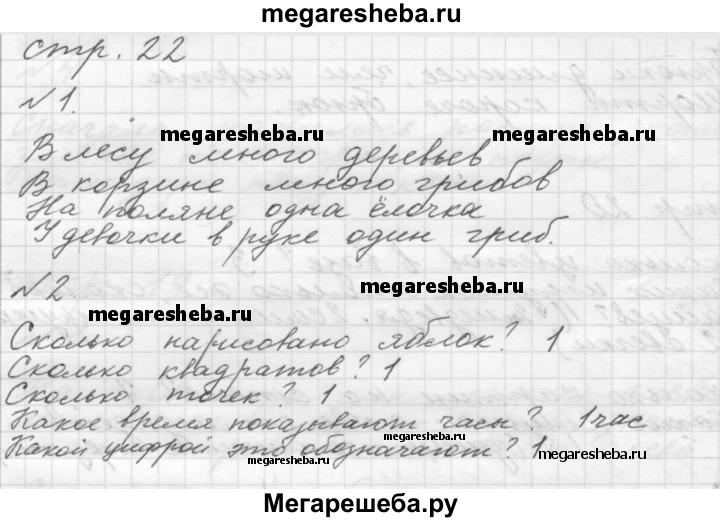 megaresheba.ru
стр. 22
№1.
megaresheba.ru megaresheba.ru
В лесу много деревьев
В корзине много грибов
На поляне одна ёлочка
У девочки в руке один гриб.
№2
megaresheba.ru megaresheba.ru
Сколько нарисовано яблок? 1
Сколько квадратов? 1
Сколько точек? 1
Какое время показывают часы? 1час
megaresheba.ru
Какой цифрой это обозначают? 1
megaresheba.ru megaresheba.ru
Мегарешеба.ру